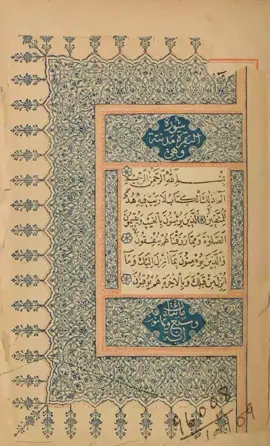 سورة
البقرة مدنية
وهى
بسم الله الرحمن الرحيم
الم ذلك الكتاب لا ريب فيه هدى
للمتقين الذين يؤمنون بالغيب ويقيمون
الصلوة ومما رزقناهم ينفقون
والذين يؤمنون بما انزل اليك وما
انزل من قبلك وبالاخرة هم يوقنون
مائتان
وسبع وثمانون